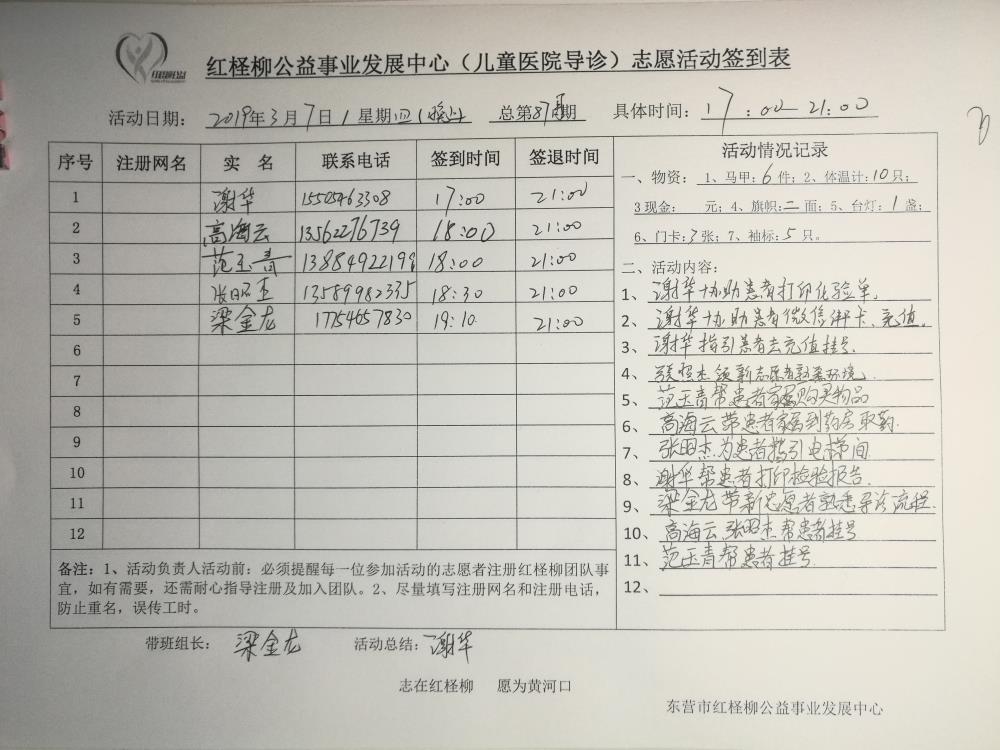 红柽柳公益事业发展中心（儿童医院导诊）志愿活动签到表
活动日期： 2019年3月7日 / 星期四（晚上） 总第87期 具体时间：17：00—21：00
序号 注册网名 实 名 联系电话 签到时间 签退时间
1 谢华 15505463308 17:00 21:00
2 高海云 13562276739 18:00 21:00
3 范玉青 13884922199 18:00 21:00
4 张昭杰 13589982335 18:30 21:00
5 梁金龙 17754657830 19:10 21:00
6
7
8
9
10
11
12
备注：1、活动负责人活动前：必须提醒每一位参加活动的志愿者注册红柽柳团队事
宜，如有需要，还需耐心指导注册及加入团队。2、尽量填写注册网名和注册电话，
防止重名，误传工时。
活动情况记录
一、物资： 1、马甲：6件；2、体温计：10只；
3现金： 元；4、旗帜：二面；5、台灯：1盏；
6、门卡：3张；7、袖标：5只。
二、活动内容：
1、谢华协助患者打印化验单.
2、谢华协助患者微信绑卡、充值。
3、谢华指引患者去充值挂号.
4、张照杰领新志愿者熟悉环境.
5、范玉青帮患者家属购买物品
6、高海云带患者家属到药房取药.
7、张昭杰为患者指引电梯间
8、谢华帮患者打印检验报告.
9、梁金龙带新志愿者熟悉导诊流程.
10、高海云 张昭杰帮患者挂号
11、范玉青帮患者挂号.
12、
带班组长： 梁金龙 活动总结：谢华
志在红柽柳 愿为黄河口
东营市红柽柳公益事业发展中心